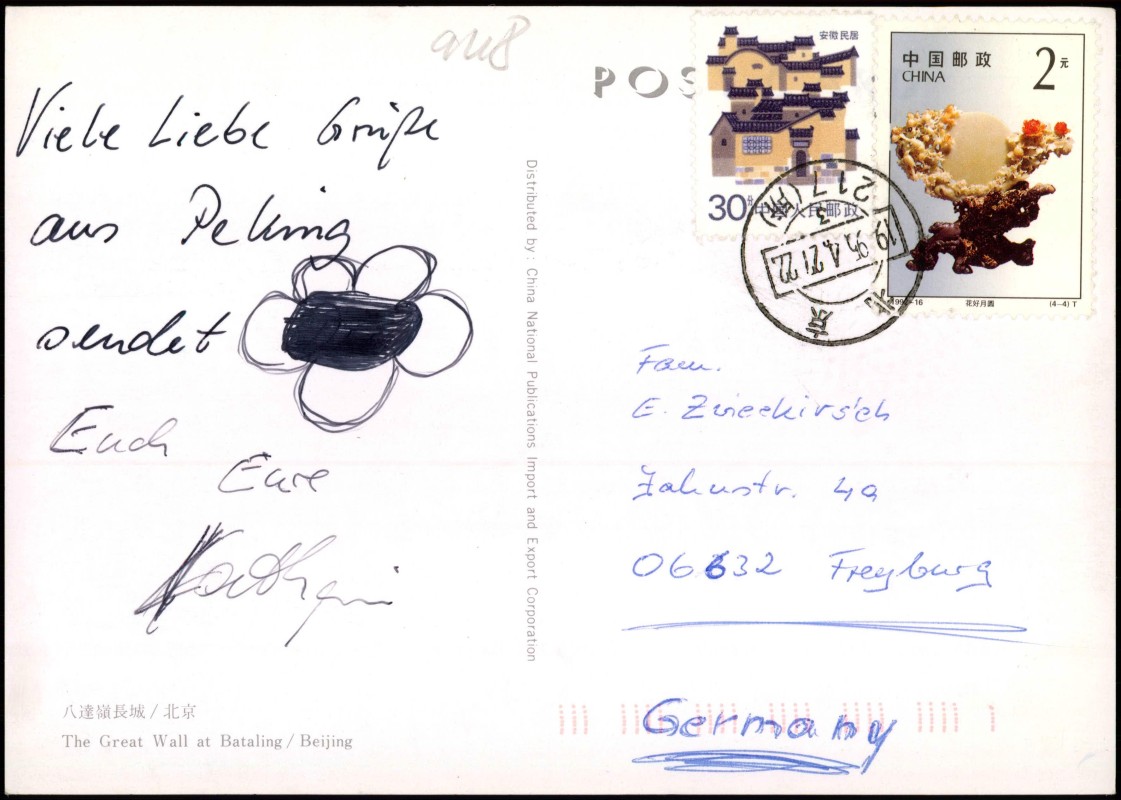 Viele Liebe Grüße
aus Peking
sendet
Euch
Eure
Kathrin
八達嶺長城 / 北京
The Great Wall at Bataling / Beijing
Distributed by: China National Publications Import and Export Corporation
POS
安徽民居
30分 中国人民邮政
中国邮政
CHINA
2元
花好月圆
(4-4) T
北京
Fam.
E. Zwieckirsch
Jahnstr. 4a
06632 Freyburg
Germany